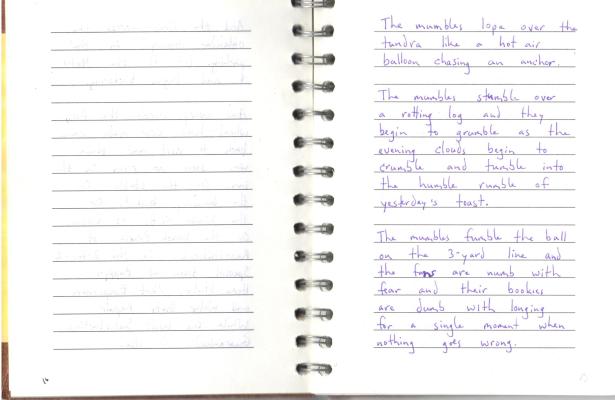 The mumbles lope over the
tundra like a hot air
balloon chasing an anchor.
The mumbles stumble over
a rotting log and they
begin to grumble as the
evening clouds begin to
crumble and tumble into
the humble rumble of
yesterday's toast.
The mumbles fumble the ball
on the 3-yard line and
the fans are numb with
fear and their bookies
are dumb with longing
for a single moment when
nothing goes wrong.